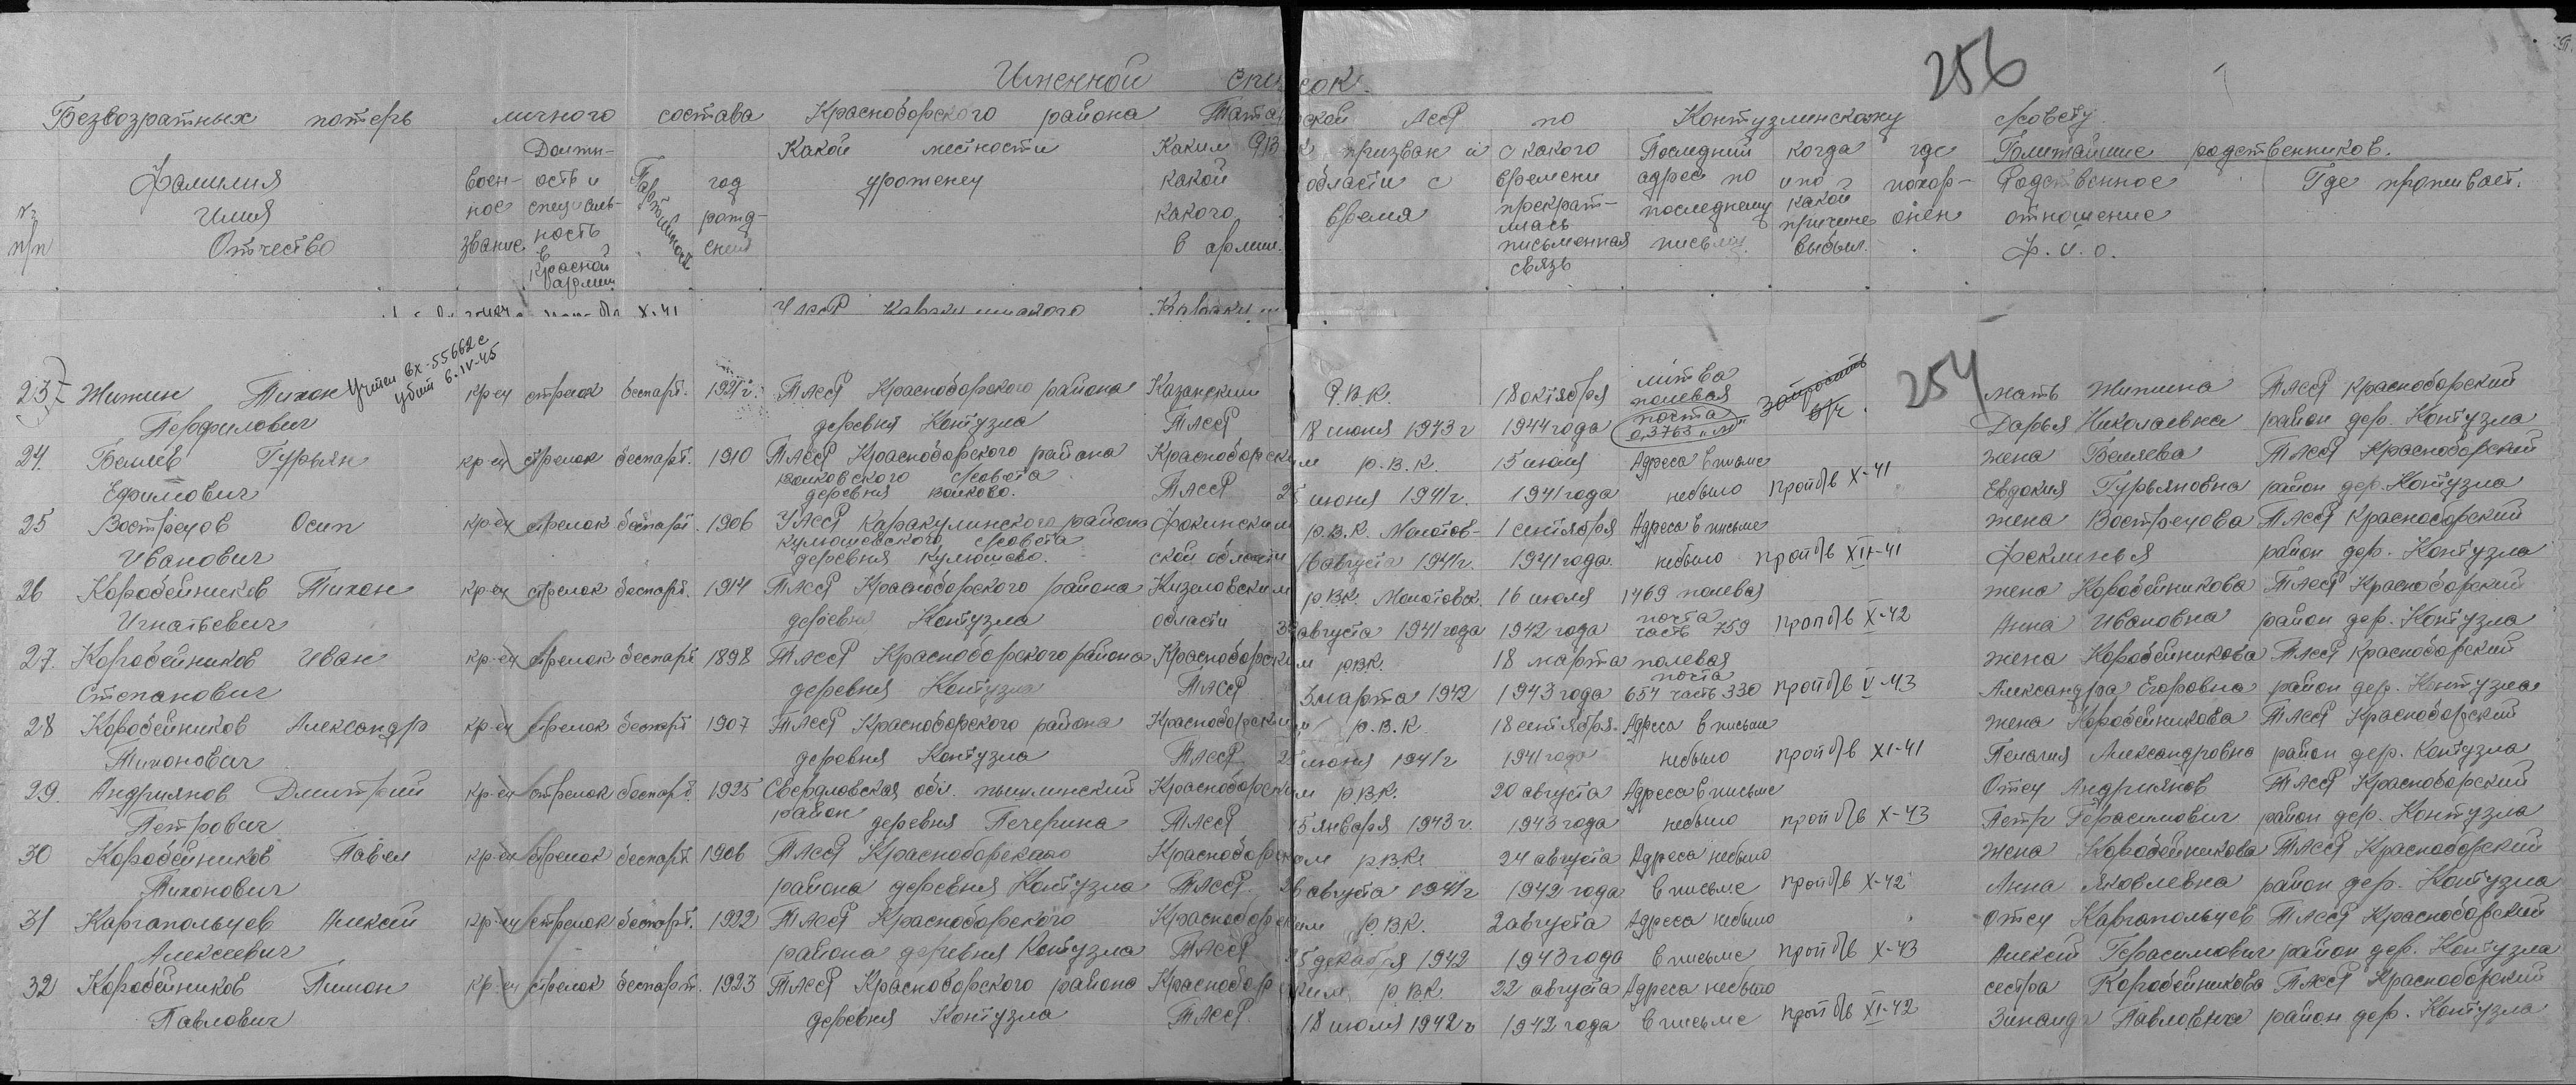 256
Именной список
Безвозратных потерь личного состава Красноборского района Татарской АССР по Контузлинскому с/совету
№ п/п
Фамилия Имия Отчество
Воен-ное звание
Должн-ость и специаль-ность в Красной армии
Партийность
год рожд-ения
Какой местности уроженец
Каким РВК призван и какой области с какого время в армии.
с какого времени прекрат-илась письменная связь
Последний адрес по последнему письму
когда и по какой причине выбыл.
где похор-онен
Ближайшие родственников.
Родственное отношение ф.и.о.
Где проживает.
254
23 Жижин Тихон Учтен вх-55662с кр-ец стрелок беспарт. 1921г. ТАССР Красноборского района Казанским Р.В.К. 18 октября литва полевая мать Жижина ТАССР Красноборский
Перфилович убит 6-IV-45 деревня Контузла ТАССР 18 июня 1943г 1944года почта 0,3763 "М" запросить в/ч Дарья Николаевна район дер. Контузла
24. Беляев Гурьян кр-ец стрелок беспарт. 1910 ТАССР Красноборского района Красноборским р.в.к. 15 июля Адреса в письме жена Беляева ТАССР Красноборский
Ефимович с/совета деревня ТАССР 25 июня 1941г. 1941года небыло проп б/в X-41 Евдокия Гурьяновна район дер. Контузла
25 Вострецов Осип кр-ец стрелок беспарт. 1906 УАССР Каракулинского района Фокинским р.в.к. Молотов- 1 сентября Адреса в письме жена Вострецова ТАССР Красноборский
Иванович Кулюшевского с/совета деревня Кулюшево. ской области 16 августа 1941г. 1941года небыло проп б/в XII-41 район дер. Контузла
26 Коробейников Тихон кр-ец стрелок беспарт. 1914 ТАССР Красноборского района Кизеловским р.в.к. Молотовск. 16 июля 1469 полевая жена Коробейникова ТАССР Красноборский
Игнатьевич деревня Контузла области августа 1941года 1942 года почта часть 759 проп б/в X-42 Анна Ивановна район дер. Контузла
27. Коробейников Иван кр-ец стрелок беспарт 1898 ТАССР Красноборского района Красноборским рвк. 18 марта полевая жена Коробейникова ТАССР Красноборский
Степанович деревня Контузла ТАССР 3 марта 1942 1943года почта 654 часть 330 проп б/в V-43 Александра Егоровна район дер. Контузла
28 Коробейников Александр кр-ец стрелок беспарт 1907 ТАССР Красноборского района Красноборским р.в.к 18 сентября. Адреса в письме жена Коробейникова ТАССР Красноборский
Тихонович деревня Контузла ТАССР 25 июня 1941г 1941года небыло проп б/в XI-41 Пелагия Александровна район дер. Контузла
29. Андриянов Дмитрий кр-ец стрелок беспарт. 1925 Свердловская обл. пышминский Красноборским р.в.к. 20 августа Адреса в письме Отец Андриянов ТАССР Красноборский
Петрович район деревня Печеркина ТАССР 15 января 1943г. 1943года небыло проп б/в X-43 Петр Герасимович район дер. Контузла
30 Коробейников Павел кр-ец стрелок беспарт. 1906 ТАССР Красноборского Красноборским рвк. 24 августа Адреса небыло жена Коробейникова ТАССР Красноборский
Тихонович района деревня Контузла ТАССР. 26 августа 1941г 1942 года в письме проп б/в X-42 Анна Яковлевна район дер. Контузла
31 Каргапольцев Алексей кр-ец стрелок беспарт. 1922 ТАССР Красноборского Красноборским р.вк. 2 августа Адреса небыло Отец Каргапольцев ТАССР Красноборский
Алексеевич района деревня Контузла ТАССР 15 декабря 1942 1943года в письме проп б/в X-43 Алексей Герасимович район дер. Контузла
32 Коробейников Пимон кр-ец стрелок беспарт. 1923 ТАССР Красноборского района Красноборским рвк 22 августа Адреса небыло сестра Коробейникова ТАССР Красноборский
Павлович деревня Контузла ТАССР. 18 июля 1942г 1942 года в письме проп б/в XI-42 Зинаида Павловна район дер. Контузла